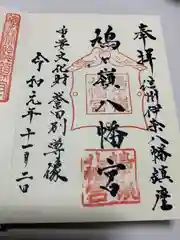 奉拝
信州伊奈八幡鎮座
鳩ヶ嶺八幡宮
重要文化財誉田別尊像
令和元年十一月二日